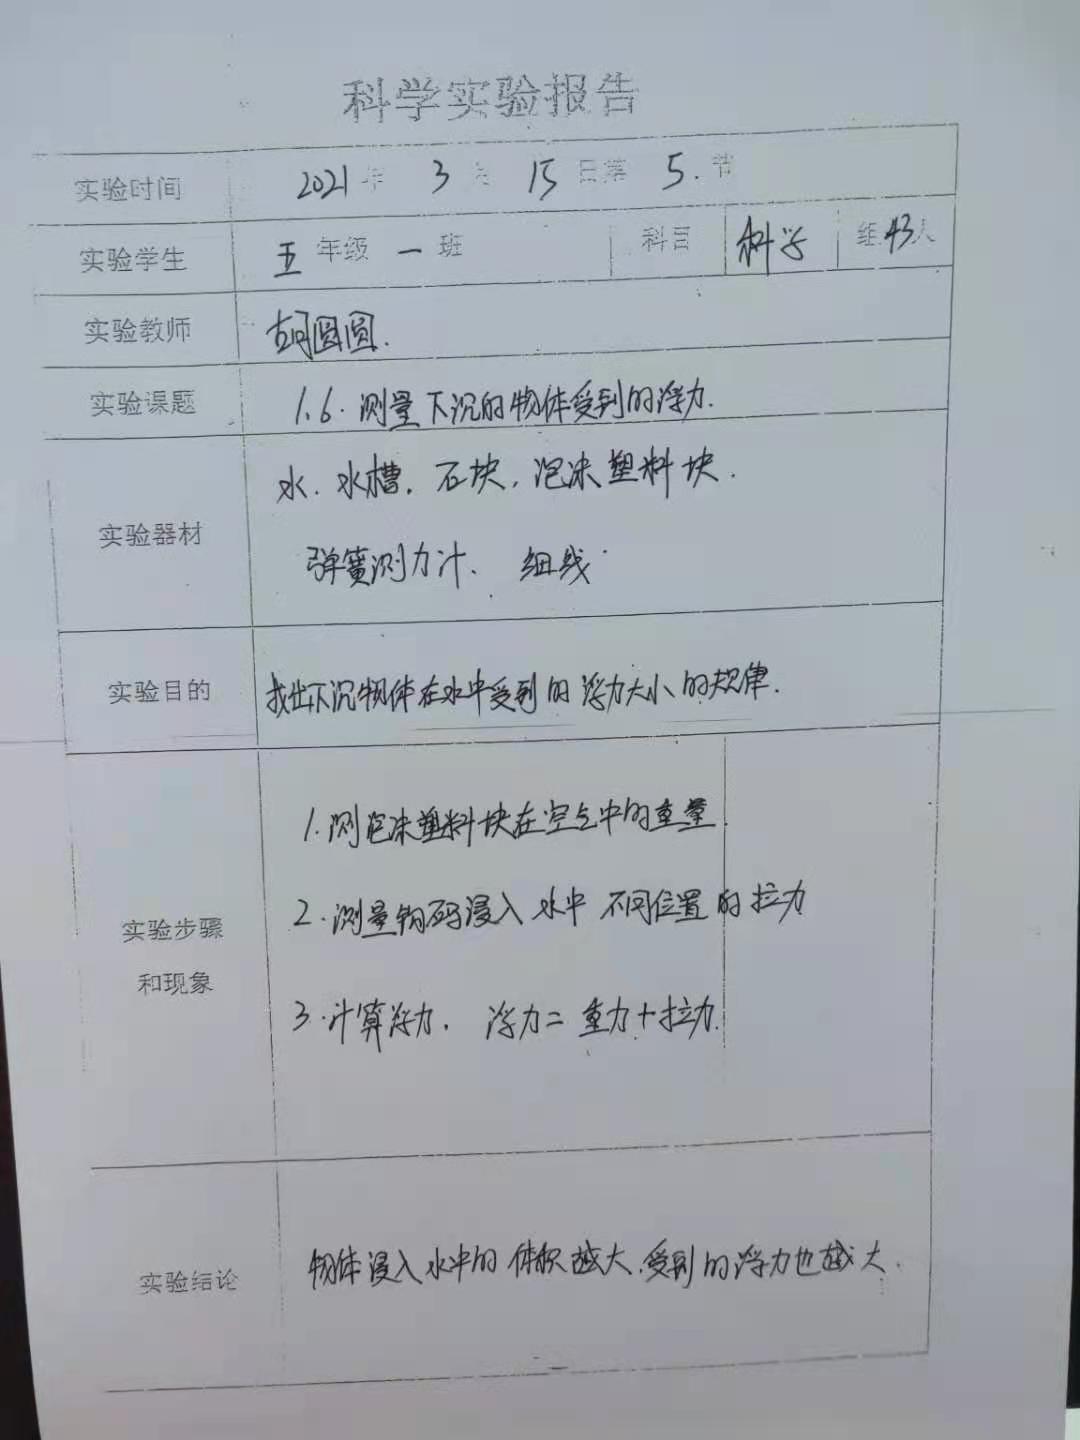 科学实验报告
实验时间 2021年 3月 15日第 5.节
实验学生 五年级 一班 科目 科学 组43人
实验教师 胡圆圆.
实验课题 1.6.测量下沉的物体受到的浮力.
水.水槽.石块.泡沫塑料块.
实验器材
弹簧测力计. 细线
实验目的 找出下沉物体在水中受到的浮力大小的规律.
1.测泡沫塑料块在空气中的重量
2.测量钩码浸入水中不同位置的拉力
实验步骤
和现象
3.计算浮力. 浮力=重力+拉力.
实验结论 物体浸入水中的体积越大.受到的浮力也越大.